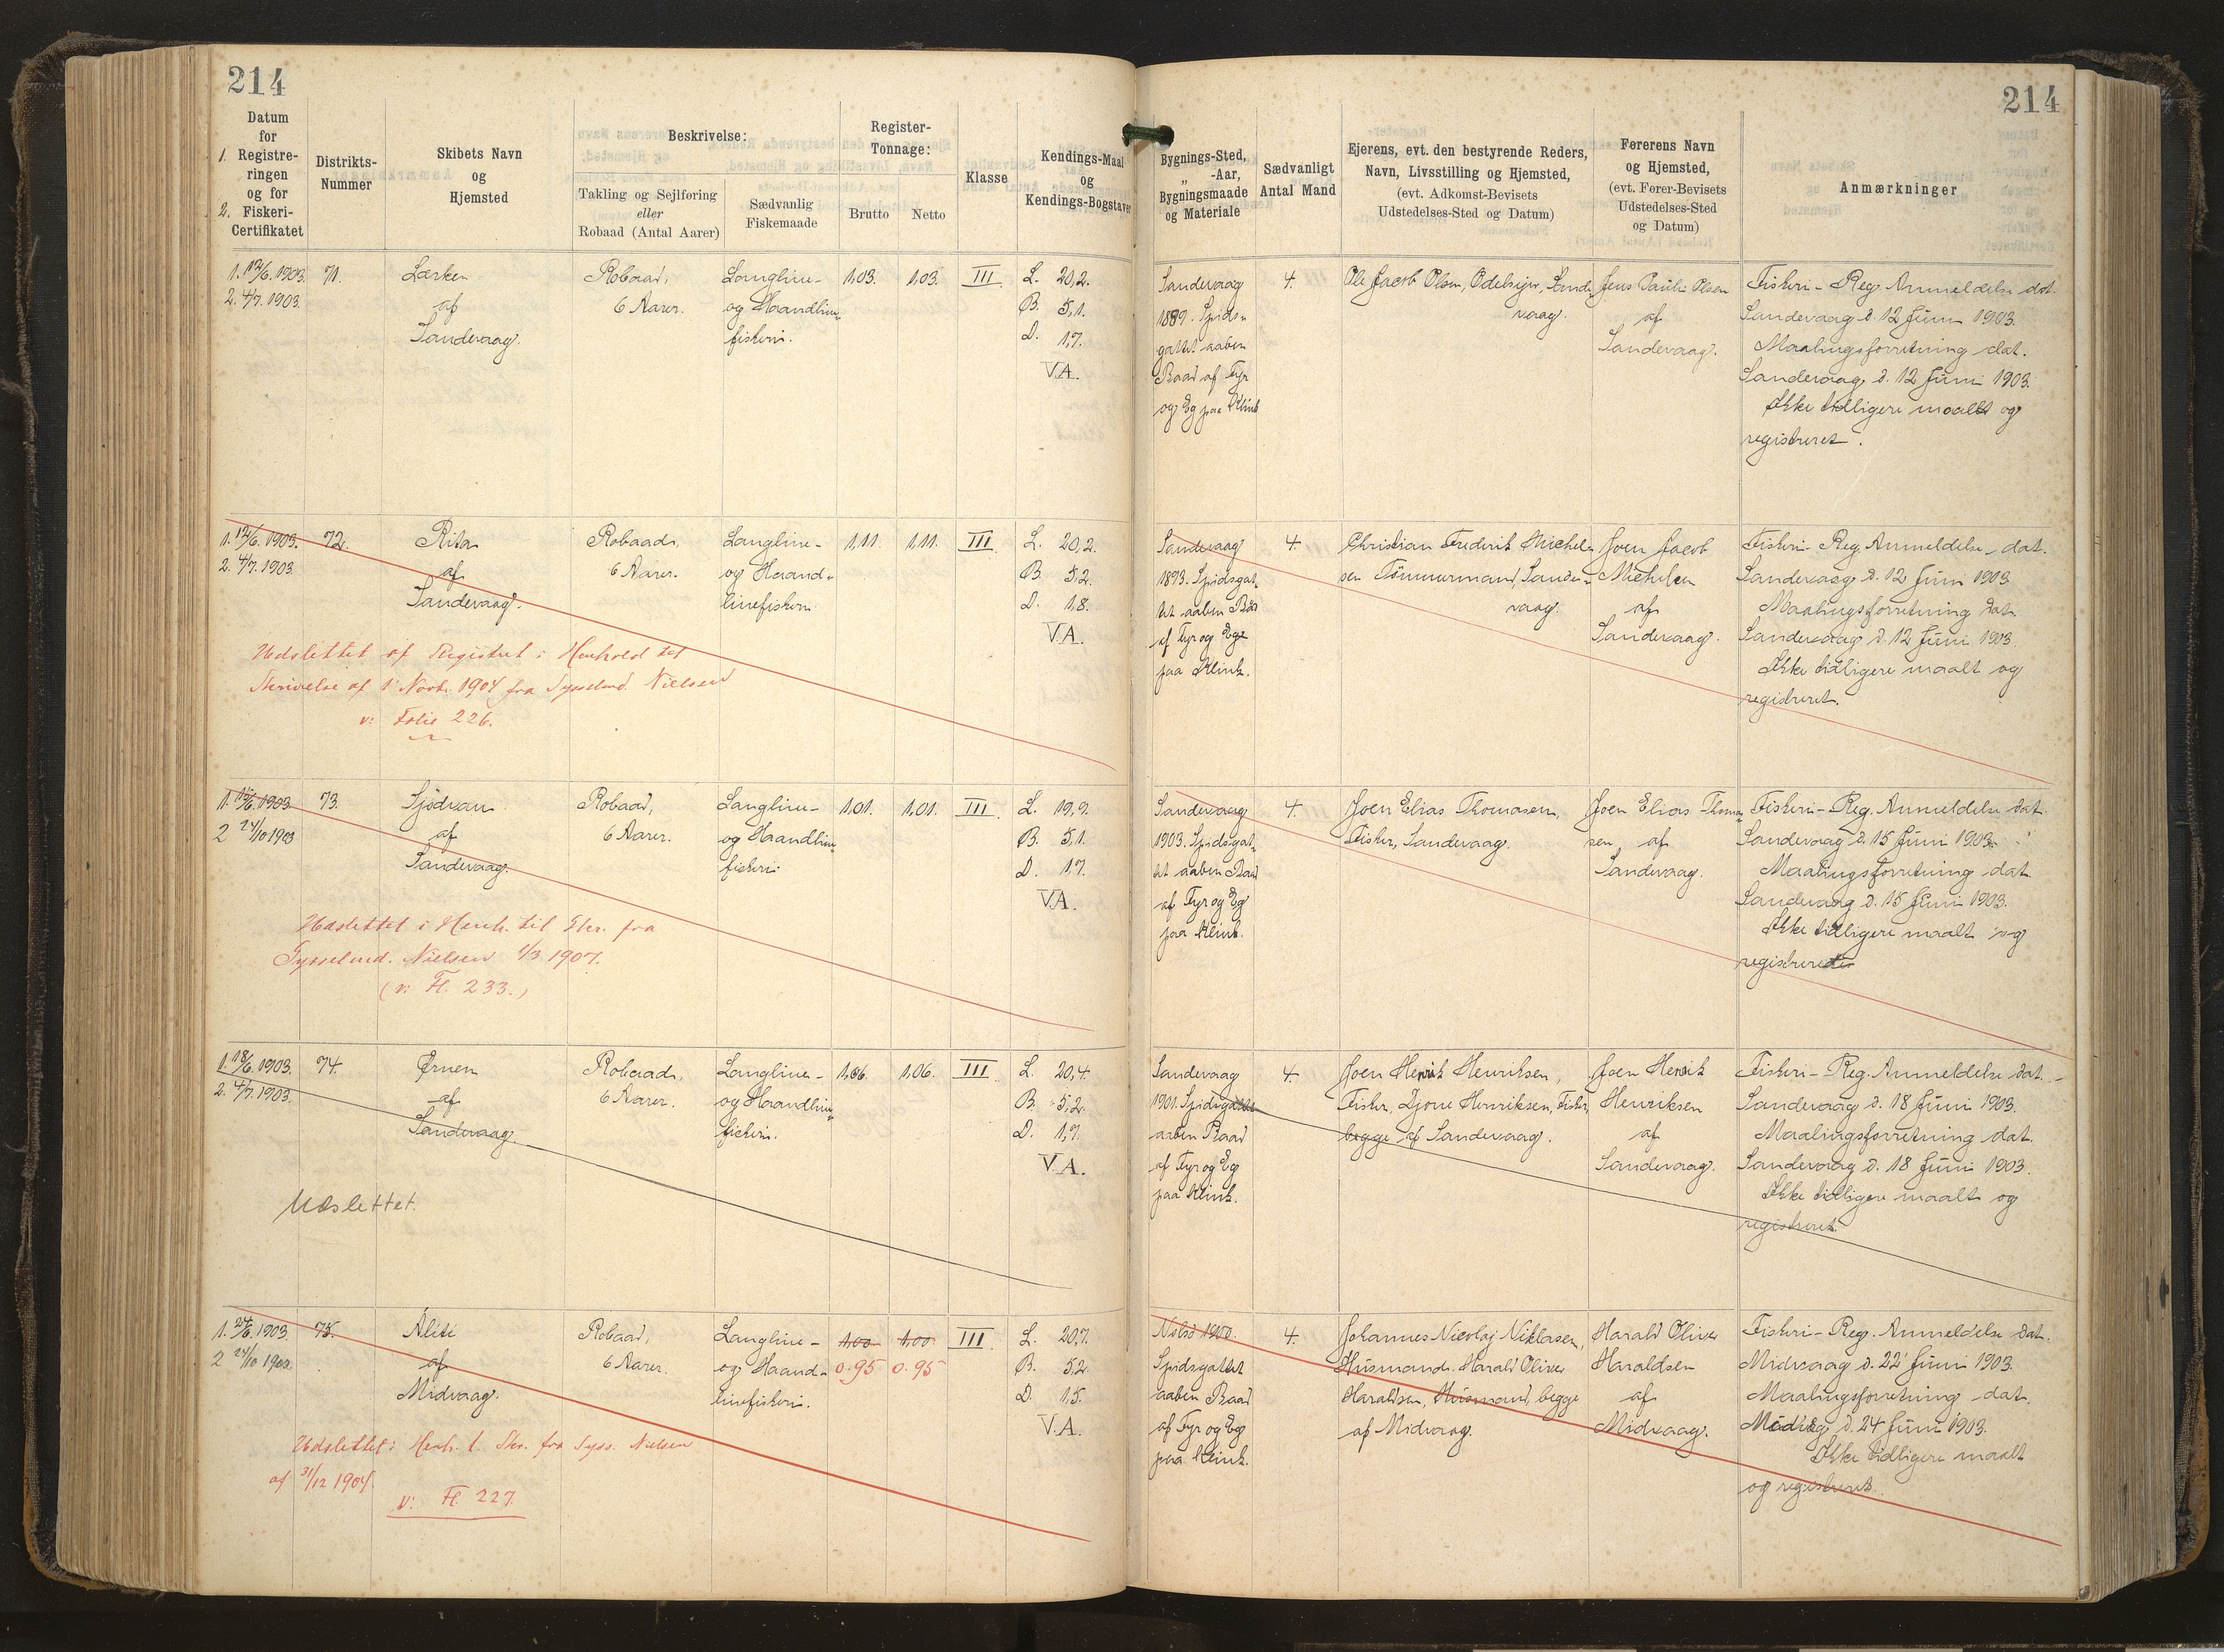 214
214
1. Datum for Registreringen
2. og for Fiskeri-Certifikatet
Distrikts-Nummer
Skibets Navn og Hjemsted
Beskrivelse:
Takling og Sejlføring eller Robaad (Antal Aarer)
Sædvanlig Fiskemaade
Register-Tonnage:
Brutto
Netto
Klasse
Kendings-Maal og Kendings-Bogstaver
Bygnings-Sted, „ -Aar, Bygningsmaade og Materiale
Sædvanligt Antal Mand
Ejerens, evt. den bestyrende Reders, Navn, Livsstilling og Hjemsted, (evt. Adkomst-Bevisets Udstedelses-Sted og Datum)
Førerens Navn og Hjemsted, (evt. Fører-Bevisets Udstedelses-Sted og Datum)
Anmærkninger
1. 12/6. 1903.
2. 4/7. 1903.
71.
Lærken
af
Sandevaag.
Robaad,
6 Aarer.
Langline-
og Haandline-
fiskeri.
1,03.
1,03.
III.
L. 20,2.
B. 5,1.
D. 1,7.
V.A.
Sandevaag
1889. Spids-
gattet aaben
Baad af Fyr
og Eg paa Klink
4.
Ole Jacob Olsen, Odelsejer, Sande-
vaag.
Jens Pauli Olsen
af
Sandevaag.
Fiskeri-Reg. Anmeldelse dat.
Sandevaag d. 12 Juni 1903.
Maalingsforretning dat.
Sandevaag d. 12 Juni 1903.
Ikke tidligere maalt og
registreret.
1. 12/6. 1903.
2. 4/7. 1903.
72.
Rita
af
Sandevaag.
Robaad,
6 Aarer.
Langline-
og Haand-
linefiskeri.
1,11.
1,11.
III.
L. 20,2.
B. 5,2.
D. 1,8.
V.A.
Udslettet af Registret i Henhold til
Skrivelse af 1 Novb. 1904 fra Sysselmd. Nielsen
v: Folie 226.
Sandevaag
1893. Spidsgat-
tet aaben Baad
af Fyr og Eg
paa Klink.
4.
Christian Frederik Michel-
sen Tömmermand, Sande-
vaag.
Joen Jacob
Michelsen
af
Sandevaag.
Fiskeri-Reg. Anmeldelse dat.
Sandevaag d. 12 Juni 1903
Maalingsforretning dat.
Sandevaag d. 12 Juni 1903.
Ikke tidligere maalt og
registreret.
1. 15/6. 1903.
2 24/10 1903
73.
Sjødvan
af
Sandevaag.
Robaad,
6 Aarer.
Langline-
og Haandline-
fiskeri.
1,01.
1,01.
III.
L. 19,9.
B. 5,1.
D. 1,7.
V.A.
Udslettet i Henh. til Skr. fra
Sysselmd. Nielsen 1/3 1907.
(v: Fl. 233.)
Sandevaag
1903. Spidsgat-
tet aaben Baad
af Fyr og Eg
paa Klink.
4.
Joen Elias Thomasen,
Fisker, Sandevaag.
Joen Elias Thoma-
sen af
Sandevaag.
Fiskeri-Reg. Anmeldelse dat.
Sandevaag d. 15 Juni 1903.
Maalingsforretning dat.
Sandevaag d. 15 Juni 1903.
Ikke tidligere maalt og
registreret
1. 18/6. 1903.
2. 4/7. 1903.
74.
Ørnen
af
Sandevaag.
Robaad,
6 Aarer.
Langline-
og Haandline-
fiskeri.
1,06.
1,06.
III.
L. 20,4.
B. 5,2.
D. 1,7.
V.A.
Udslettet.
Sandevaag
1901. Spidsgattet
aaben Baad
af Fyr og Eg
paa Klink.
4.
Joen Henrik Henriksen,
Fisker, Djone Henriksen, Fisker,
begge af Sandevaag.
Joen Henrik
Henriksen
af
Sandevaag.
Fiskeri-Reg. Anmeldelse dat.
Sandevaag d. 18 Juni 1903.
Maalingsforretning dat.
Sandevaag d. 18 Juni 1903.
Ikke tidligere maalt og
registreret.
1. 24/6. 1903.
2 24/10 1903
75.
Aliti
af
Midvaag.
Robaad,
6 Aarer.
Langline-
og Haand-
linefiskeri.
1,00.
1,00.
0.95
0.95
III.
L. 20,7.
B. 5,2.
D. 1,5.
V.A.
Udslettet i Henh. t. Skr. fra Syss. Nielsen
af 31/12 1904.
v: Fl. 227.
Nolsö 1900.
Spidsgattet
aaben Baad
af Fyr og Eg
paa Klink.
4.
Johannes Nicolaj Niklasen,
Husmand. Harald Oliver
Haraldsen, Husmand, begge
af Midvaag.
Harald Oliver
Haraldsen
af
Midvaag.
Fiskeri-Reg. Anmeldelse dat.
Midvaag d. 22 Juni 1903.
Maalingsforretning dat.
Midvaag d. 24 Juni 1903.
Ikke tidligere maalt
og registreret.